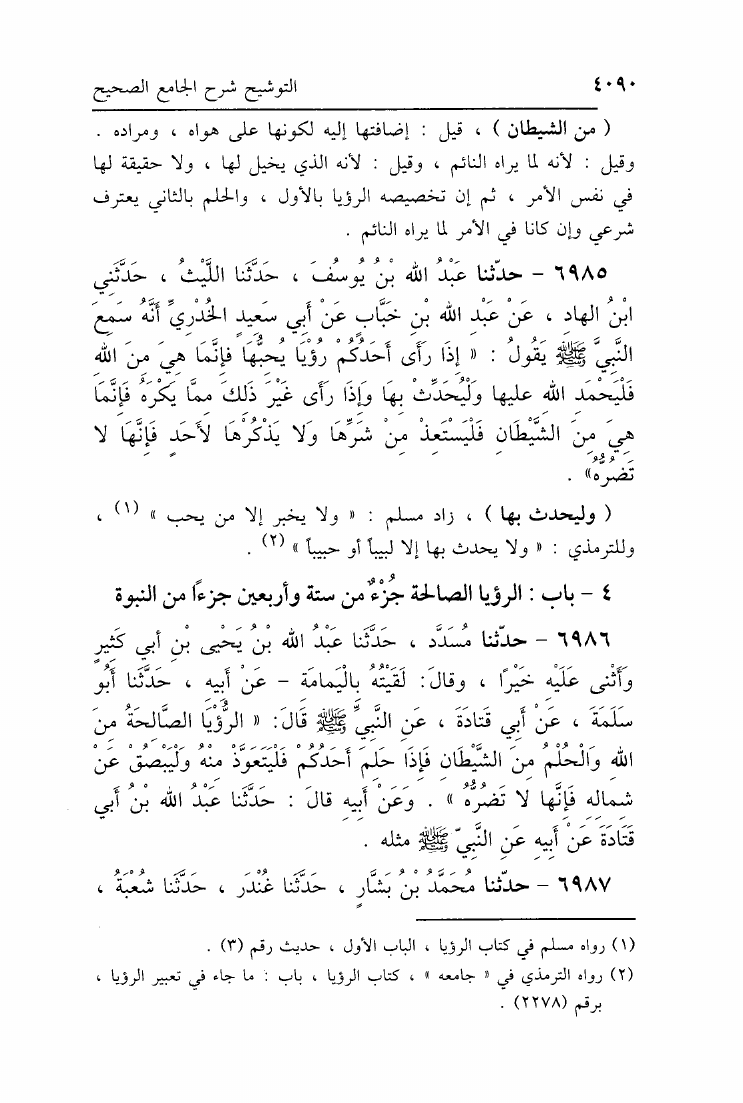 ٤٠٩٠ التوشيح شرح الجامع الصحيح
( من الشيطان ) ، قيل : إضافتها إليه لكونها على هواه ، ومراده .
وقيل : لأنه لما يراه النائم ، وقيل : لأنه الذي يخيل لها ، ولا حقيقة لها
في نفس الأمر ، ثم إن تخصيصه الرؤيا بالأول ، والحلم بالثاني يعترف
شرعي وإن كانا في الأمر لما يراه النائم .
٦٩٨٥ - حدّثنا عَبْدُ الله بْنُ يُوسُفَ ، حَدَّثَنا اللَّيْثُ ، حَدَّثَنِي
ابْنُ الهادِ ، عَنْ عَبْدِ الله بْنِ خَبَّابٍ عَنْ أبي سَعِيدٍ الخُدْرِيِّ أنَّهُ سَمِعَ
النَّبِيَّ ﷺ يَقُولُ : « إذَا رَأى أحَدُكُمْ رُؤْيَا يُحِبُّهَا فإنَّمَا هِيَ مِنَ الله
فَلْيَحْمَدِ الله عليها وَلْيُحَدِّثْ بِهَا وَإذَا رَأى غَيْرَ ذَلِكَ مِمَّا يَكْرَهُ فَإنَّمَا
هِيَ مِنَ الشَّيْطَانِ فَلْيَسْتَعِذْ مِنْ شَرِّهَا وَلا يَذْكُرْهَا لأحَدٍ فَإنَّهَا لا
تَضُرُّهُ» .
( وليحدث بها ) ، زاد مسلم : « ولا يخبر إلا من يحب » (١) ،
وللترمذي : « ولا يحدث بها إلا لبيباً أو حبيباً » (٢) .
٤ - باب : الرؤيا الصالحة جُزْءٌ من ستة وأربعين جزءًا من النبوة
٦٩٨٦ - حدّثنا مُسَدَّد ، حَدَّثَنَا عَبْدُ الله بْنُ يَحْيى بْنِ أبي كَثِيرٍ
وَأثْنى عَلَيْهِ خَيْرًا ، وقالَ: لَقِيْتُهُ بِالْيَمامَةِ - عَنْ أبِيهِ ، حَدَّثَنا أبُو
سَلَمَةَ ، عَنْ أبي قَتادَةَ ، عَنِ النَّبِيِّ ﷺ قَالَ: « الرُّؤْيَا الصَّالحَةُ مِنَ
الله وَالْحُلْمُ مِنَ الشَّيْطانِ فَإذَا حَلَمَ أحَدُكُمْ فَلْيَتَعَوَّذْ مِنْهُ وَلْيَبْصُقْ عَنْ
شِمالِهِ فَإنَّها لا تَضُرُّهُ » . وَعَنْ أبِيهِ قالَ : حَدَّثَنا عَبْدُ الله بْنُ أبي
قَتَادَةَ عَنْ أبِيهِ عَنِ النَّبِيّ ﷺ مثله .
٦٩٨٧ - حدّثنا مُحَمَّدُ بْنُ بَشَّارٍ ، حَدَّثَنا غُنْدَر ، حَدَّثَنا شُعْبَةُ ،
(١) رواه مسلم في كتاب الرؤيا ، الباب الأول ، حديث رقم (٣) .
(٢) رواه الترمذي في « جامعه » ، كتاب الرؤيا ، باب : ما جاء في تعبير الرؤيا ،
برقم (٢٢٧٨) .